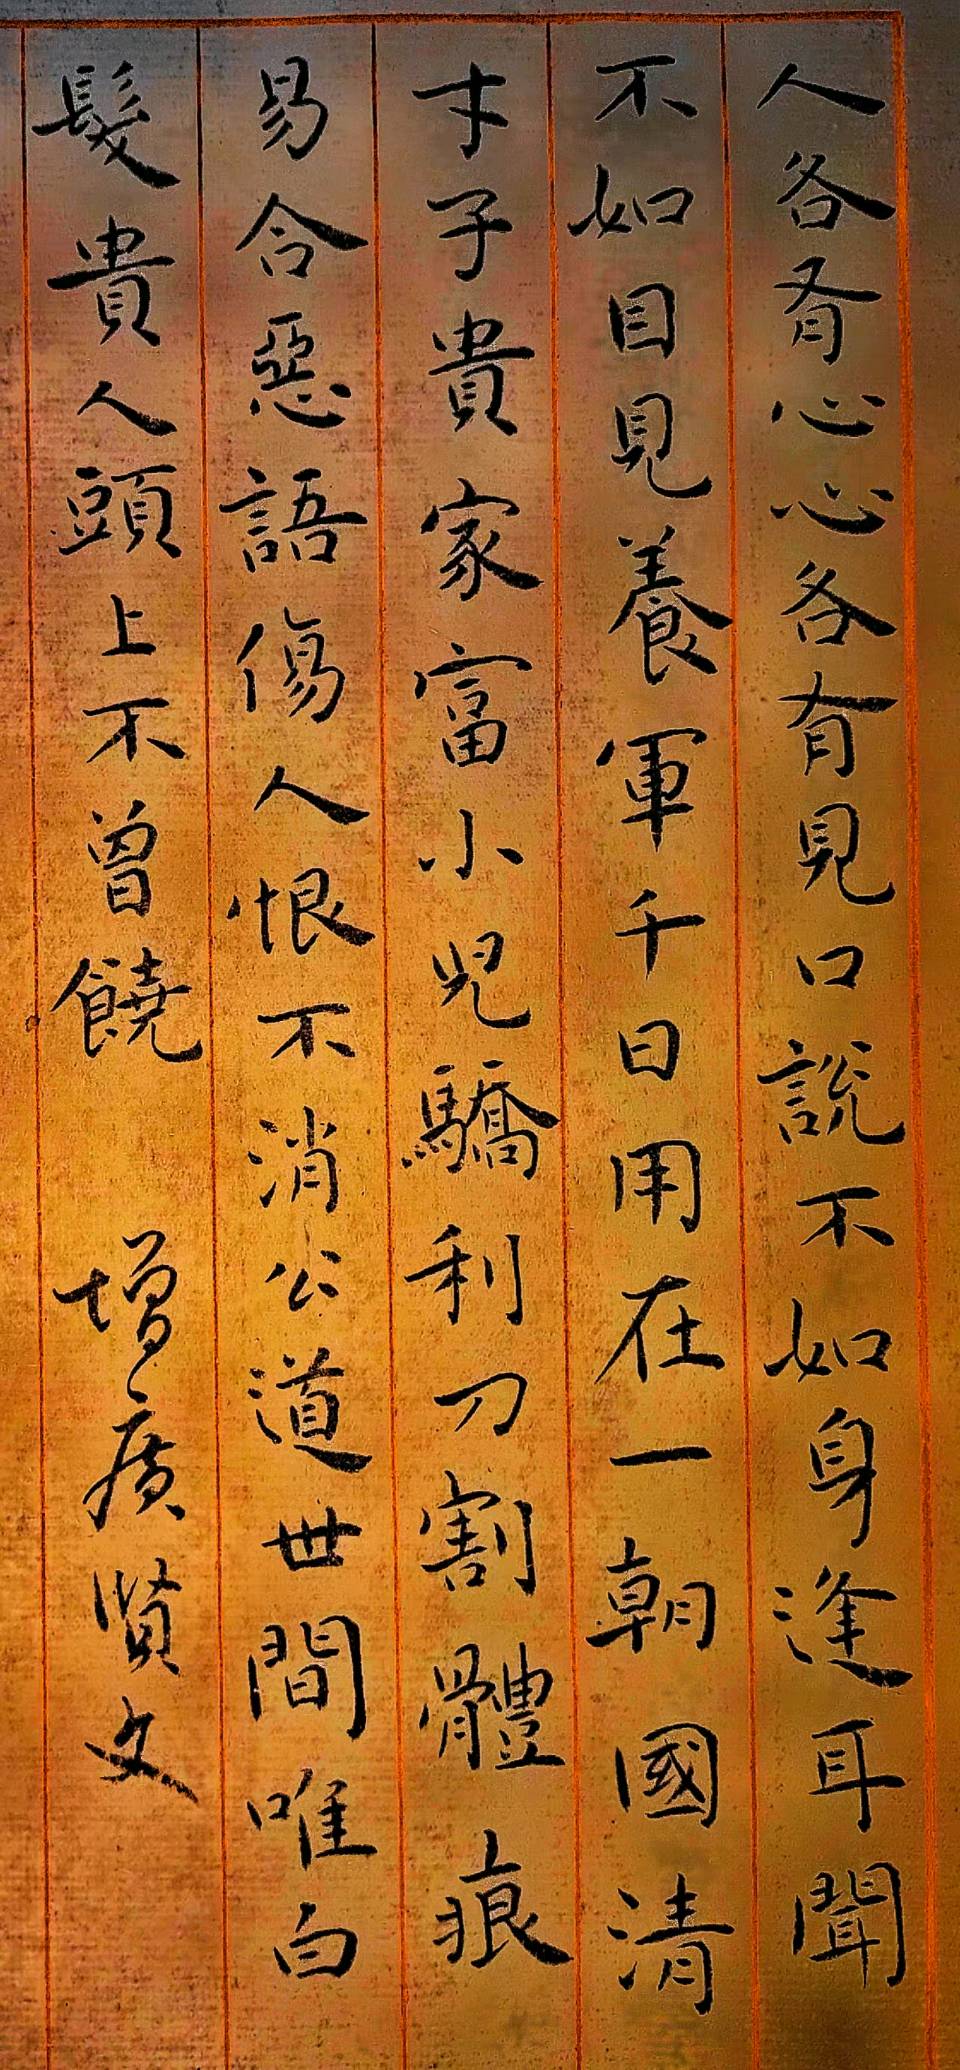 人各有心心各有見口說不如身逢耳聞
不如目見養軍千日用在一朝國清
才子貴家富小児驕利刀割體痕
易合惡語傷人恨不消公道世間唯白
髮貴人頭上不曾饒 增廣賢文